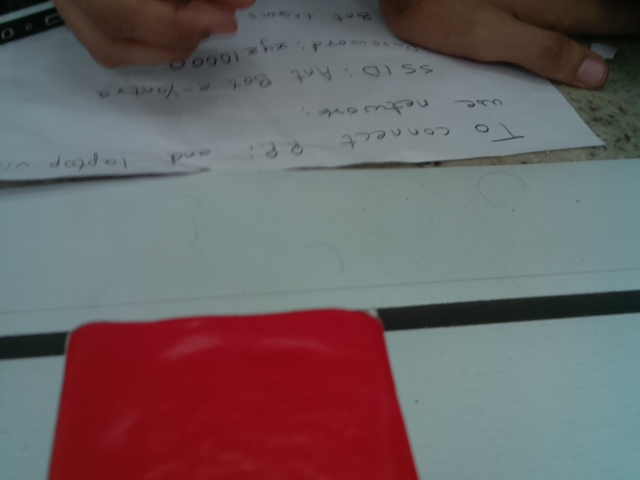 To connect R.P: and laptop vi
use network:
SSID: Ant Bot e-Yantra
Password: xyz16000
Bot teams